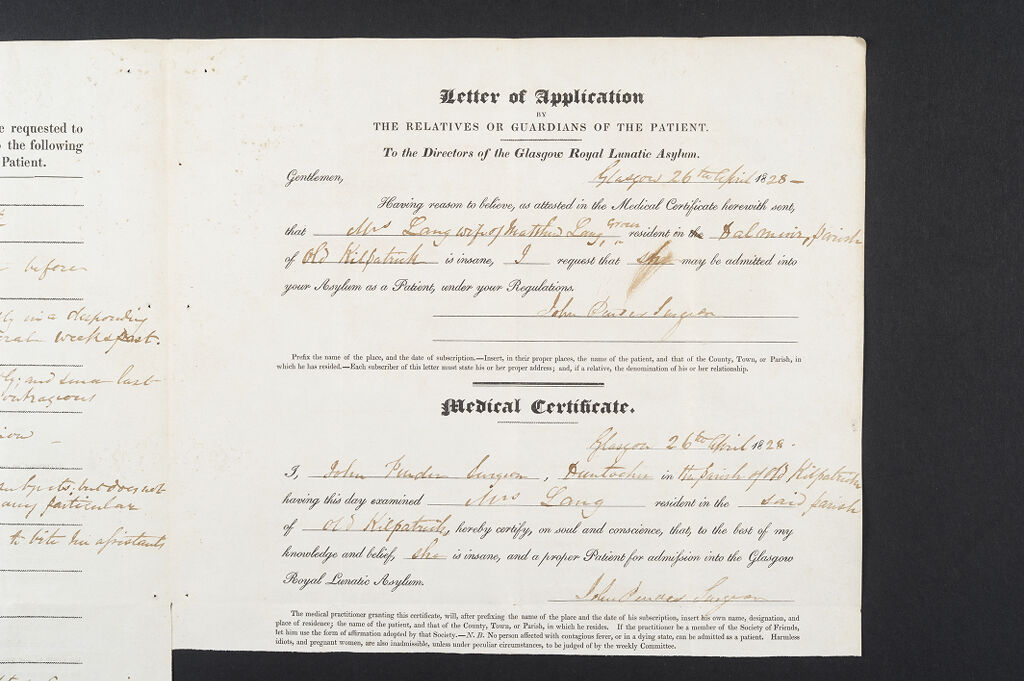 e requested to
the following
Patient.
before
in a desponding
weeks past.
and since last
outrageous
subjects, but does not
any particular
to bite her assistants
Letter of Application
BY
THE RELATIVES OR GUARDIANS OF THE PATIENT.
To the Directors of the Glasgow Royal Lunatic Asylum.
Gentlemen,
Glasgow 26th April 1828—
Having reason to believe, as attested in the Medical Certificate herewith sent,
that Mrs Lang wife of Matthew Lang, resident in the Dalmuir, parish
of Old Kilpatrick is insane, I request that she may be admitted into
your Asylum as a Patient, under your Regulations.
John Surgeon
Prefix the name of the place, and the date of subscription.—Insert, in their proper places, the name of the patient, and that of the County, Town, or Parish, in
which he has resided.—Each subscriber of this letter must state his or her proper address; and, if a relative, the denomination of his or her relationship.
Medical Certificate.
Glasgow 26th April 1828.
I, John Surgeon, Duntocher in the parish of Old Kilpatrick
having this day examined Mrs Lang resident in the said parish
of Old Kilpatrick, hereby certify, on soul and conscience, that, to the best of my
knowledge and belief, she is insane, and a proper Patient for admission into the Glasgow
Royal Lunatic Asylum.
John Surgeon
The medical practitioner granting this certificate, will, after prefixing the name of the place and the date of his subscription, insert his own name, designation, and
place of residence; the name of the patient, and that of the County, Town, or Parish, in which he resides. If the practitioner be a member of the Society of Friends,
let him use the form of affirmation adopted by that Society.—N. B. No person affected with contagious fever, or in a dying state, can be admitted as a patient. Harmless
idiots, and pregnant women, are also inadmissible, unless under peculiar circumstances, to be judged of by the weekly Committee.